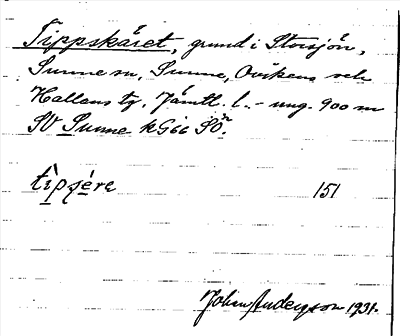 Tippskäret, grund i Storsjön,
Sunne sn, Sunne, Ovikens och
Hallens tg, Jämtl. l. - ung. 900 m
SV Sunne k G66 SÖ.
tìpʃère 151
Johan Anderzson 1931.